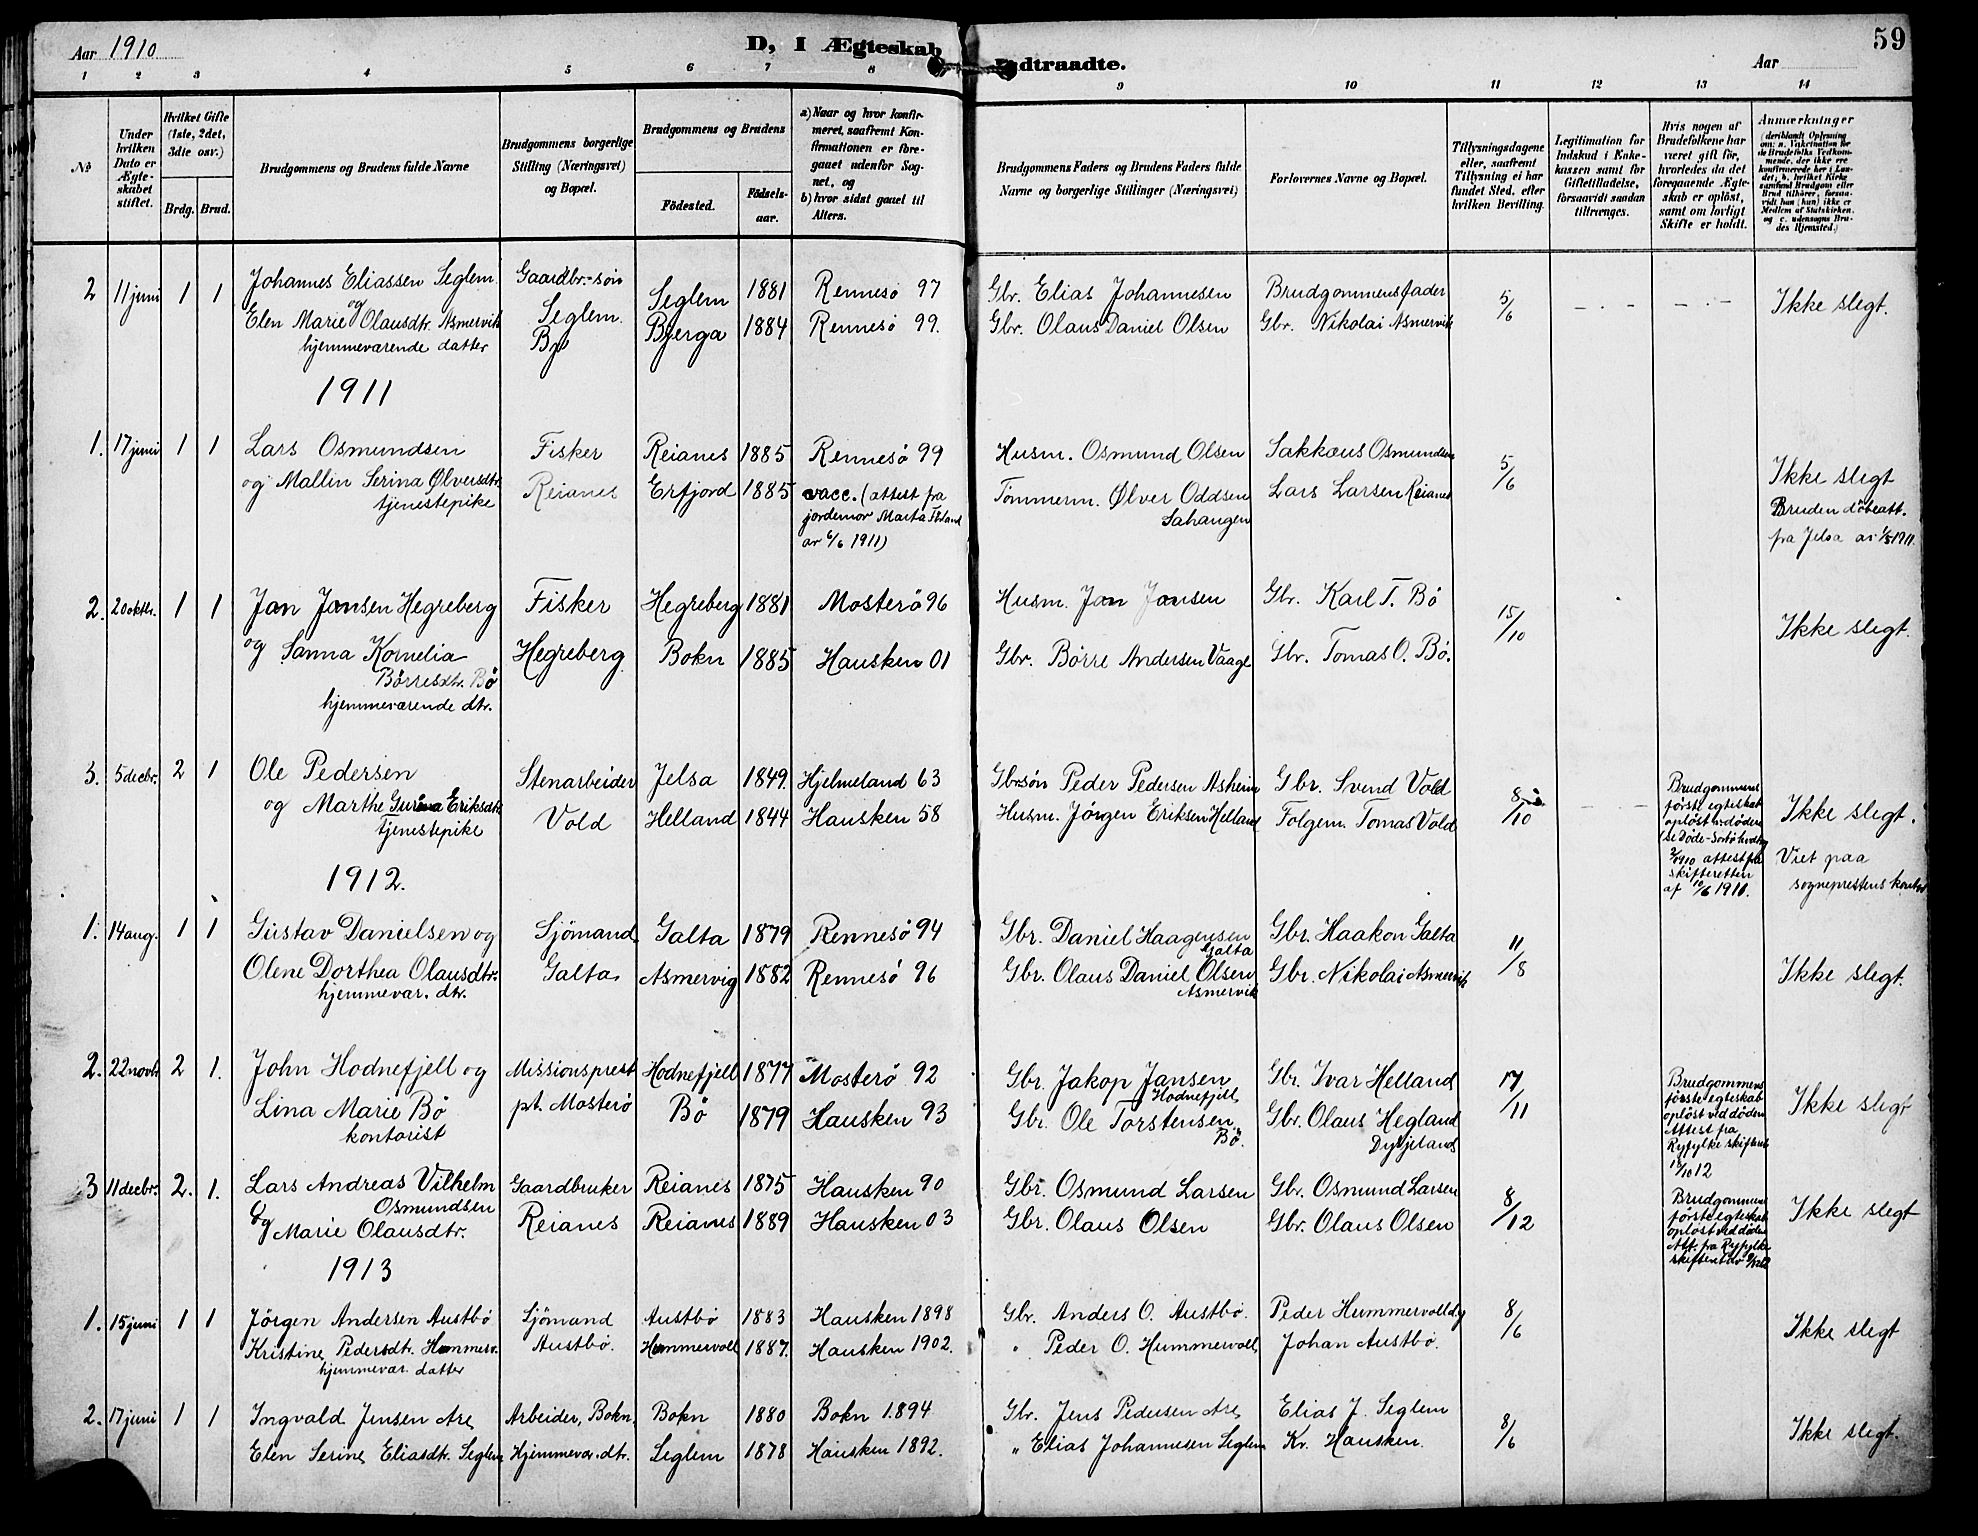 Aar 1910
D, I Ægteskab
Indtraadte.
Aar
59
1 2 3 4 5 6 7 8 9 10 11 12 13 14
№
Under hvilken Dato er Ægteskabet stiftet.
Hvilket Gifte (1ste, 2det, 3die osv.)
Brdg. Brud.
Brudgommens og Brudens fulde Navne
Brudgommens borgerlige Stilling (Næringsvei) og Bopæl.
Brudgommens og Brudens
Fødested.
Fødselsaar.
a) Naar og hvor konfirmeret, saafremt Konfirmationen er foregaaet udenfor Sognet, og
b) hvor sidst gaaet til Alters.
Brudgommens Faders og Brudens Faders fulde Navne og borgerlige Stillinger (Næringsvei)
Forlovernes Navne og Bopæl.
Tillysningsdagene eller, saafremt Tillysning ei har fundet Sted, efter hvilken Bevilling.
Legitimation for Indskud i Enkekassen samt for Giftetilladelse, forsaavidt saadan tiltrænges.
Hvis nogen af Brudefolkene har været gift før, hvorledes da det foregaaende Ægteskab er opløst, samt om lovligt Skifte er holdt.
Anmærkninger (deriblandt Oplysning om: a. Vakcination for de Brudefolks Vedkommende, der ikke ere konfirmerede her i Landet, b. hvilket Kirkesamfund Brudgom eller Brud tilhører, forsaavidt han (hun) ikke er Medlem af Statskirken, og c. udensogns Brudes Hjemsted.)
2 11 juni 1 1 Johannes Eliassen Seglem Gaardbr.-søn Seglem 1881 Rennesö 97 Gbr. Elias Johannesen Brudgommens fader 5/6 Ikke slegt.
og
Elen Marie Olausdtr. Asmervik Seglem. Bjerga 1884 Rennesö 99. Gbr. Olaus Daniel Olsen Gbr. Nikolai Asmervik
hjemmeværende datter
1911
1. 17 juni 1 1 Lars Osmundsen Fisker Reianes 1885 Rennesö 99 Husm. Osmund Olsen Sakkæus Osmundsen 5/6 Ikke slegt
og Mallin Serina Ølversdtr. Reianes Erfjord 1885 vacc. (attest fra Tømmerm. Ølver Oddsen Lars Larsen Reianes
tjenestepike jordemor Marta
Sahaugen
av 6/6 1911)
Bruden döbeatt.
fra Jelsa
2. 20 oktbr. 1 1 Jan Jansen Hegreberg Fisker Hegreberg 1881 Mosterö 96 Husm. Jan Jansen Gbr. Karl T. Bö 15/10 Ikke slegt.
og Sanna Kornelia Hegreberg Bokn 1885 Hausken 01 Gbr. Børre Andersen Vaage Gbr. Tomas O. Bö.
Börresdtr. Bö
hjemmeværende dtr.
3. 5 decbr. 2 1 Ole Pedersen Stenarbeider Jelsa 1849. Hjelmeland 63 Gbrsøn Peder Pedersen Asheim Gbr. Svend Vold 8/10 Ikke slegt.
og Marthe Eriksdtr. Vold Helland 1844 Hausken 58 Husm. Jørgen Eriksen Helland Folgem. Tomas Vold
Tjenestepike
Brudgommens
første egteskab
opløst v. døden
attest fra
skifteretten
af 10/6 1910.
Viet paa
sogneprestens kontor
1912.
1. 14 aug. 1 1 Gustav Danielsen og Sjömand, Galta 1879 Rennesö 94 Gbr. Daniel Haagensen Gbr. Haakon Galta 11/8
Galta
Olene Dorthea Olausdtr. Galta Asmervig 1882 Rennesö 96 Gbr. Olaus Daniel Olsen Gbr. Nikolai Asmervik Ikke slegt.
hjemmevar. dtr. Asmervik
2. 22 novbr 2 1. John Hodnefjell og Missionsprest Hodnefjell 1877 Mosterö 92 Gbr. Jakop Jansen Gbr. Ivar Helland 17/11 Ikke slegt
Hodnefjell
Lina Marie Bö pt. Mosterö Bö 1879 Hausken 93 Gbr. Ole Torstensen Gbr. Olaus Hegland
kontorist Bö.
Brudgommens
første egteskab
opløst ved døden
Attest fra
Ryfylke skifteret
3 11 decbr. 2. 1. Lars Andreas Vilhelm Gaardbruker Reianes 1875 Hausken 90 Gbr. Osmund Larsen Gbr. Osmund Larsen 8/12 Ikke slegt
Osmundsen
og Marie Olausdtr. Reianes Reianes 1889 Hausken 03 Gbr. Olaus Olsen Gbr. Olaus Olsen
Brudgommens
første egteskab
opløst ved døden
Att. fra Ryfylke
1913
1. 15 juni 1 1 Jörgen Andersen Austbö Sjömand Austbö 1883 Hausken 1898 Gbr. Anders O. Austbö. Peder Hummervoll 8/6 Ikke slegt
Kristine Pedersdt. Hummerv. Austbö. Hummervoll 1887. Hausken 1902. " Peder O. Hummervoll, Johan Austbö.
hjemmevar. datter
2. 17 juni 1 1 Ingvald Jensen Are Arbeider, Bokn, Bokn 1880 Bokn 1894 Gbr. Jens Pedersen Are, Elias J. Seglem 8/6 Ikke slegt.
Elen Serine Eliasdt. Seglem Hjemmevar. dtr. Seglem 1878 Hausken 1892. " Elias Johannesen Seglem Kr. Hausken.